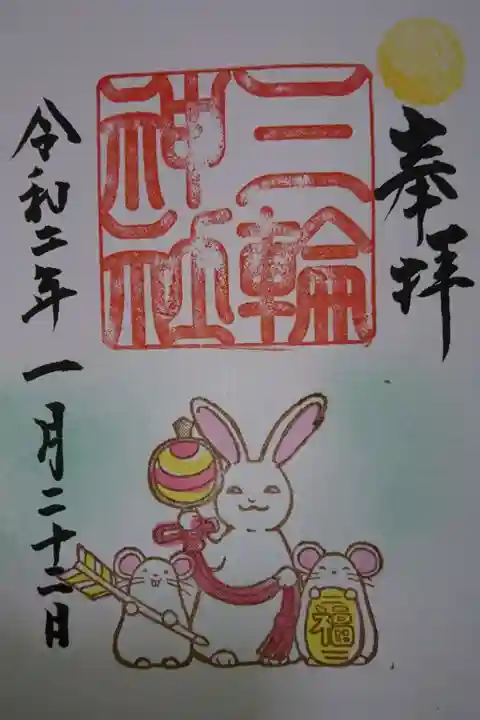 奉拝
三輪
神社
令和二年 一月二十二日
福